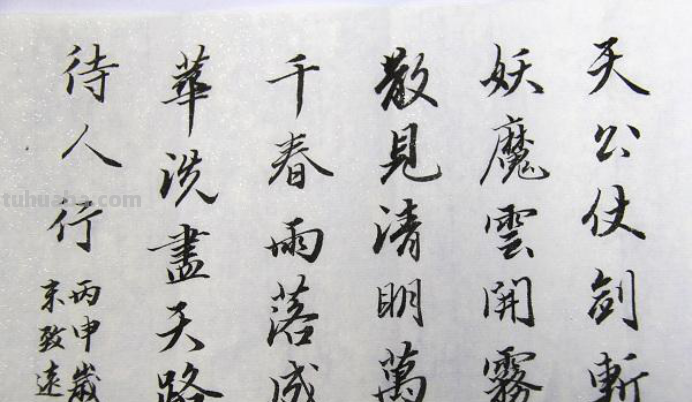 天公仗剑斬
妖魔雲開霧
散見清明萬
千春雨落成
華洗盡天路
待人行
丙申歲
末致遠
tuhuaba.com